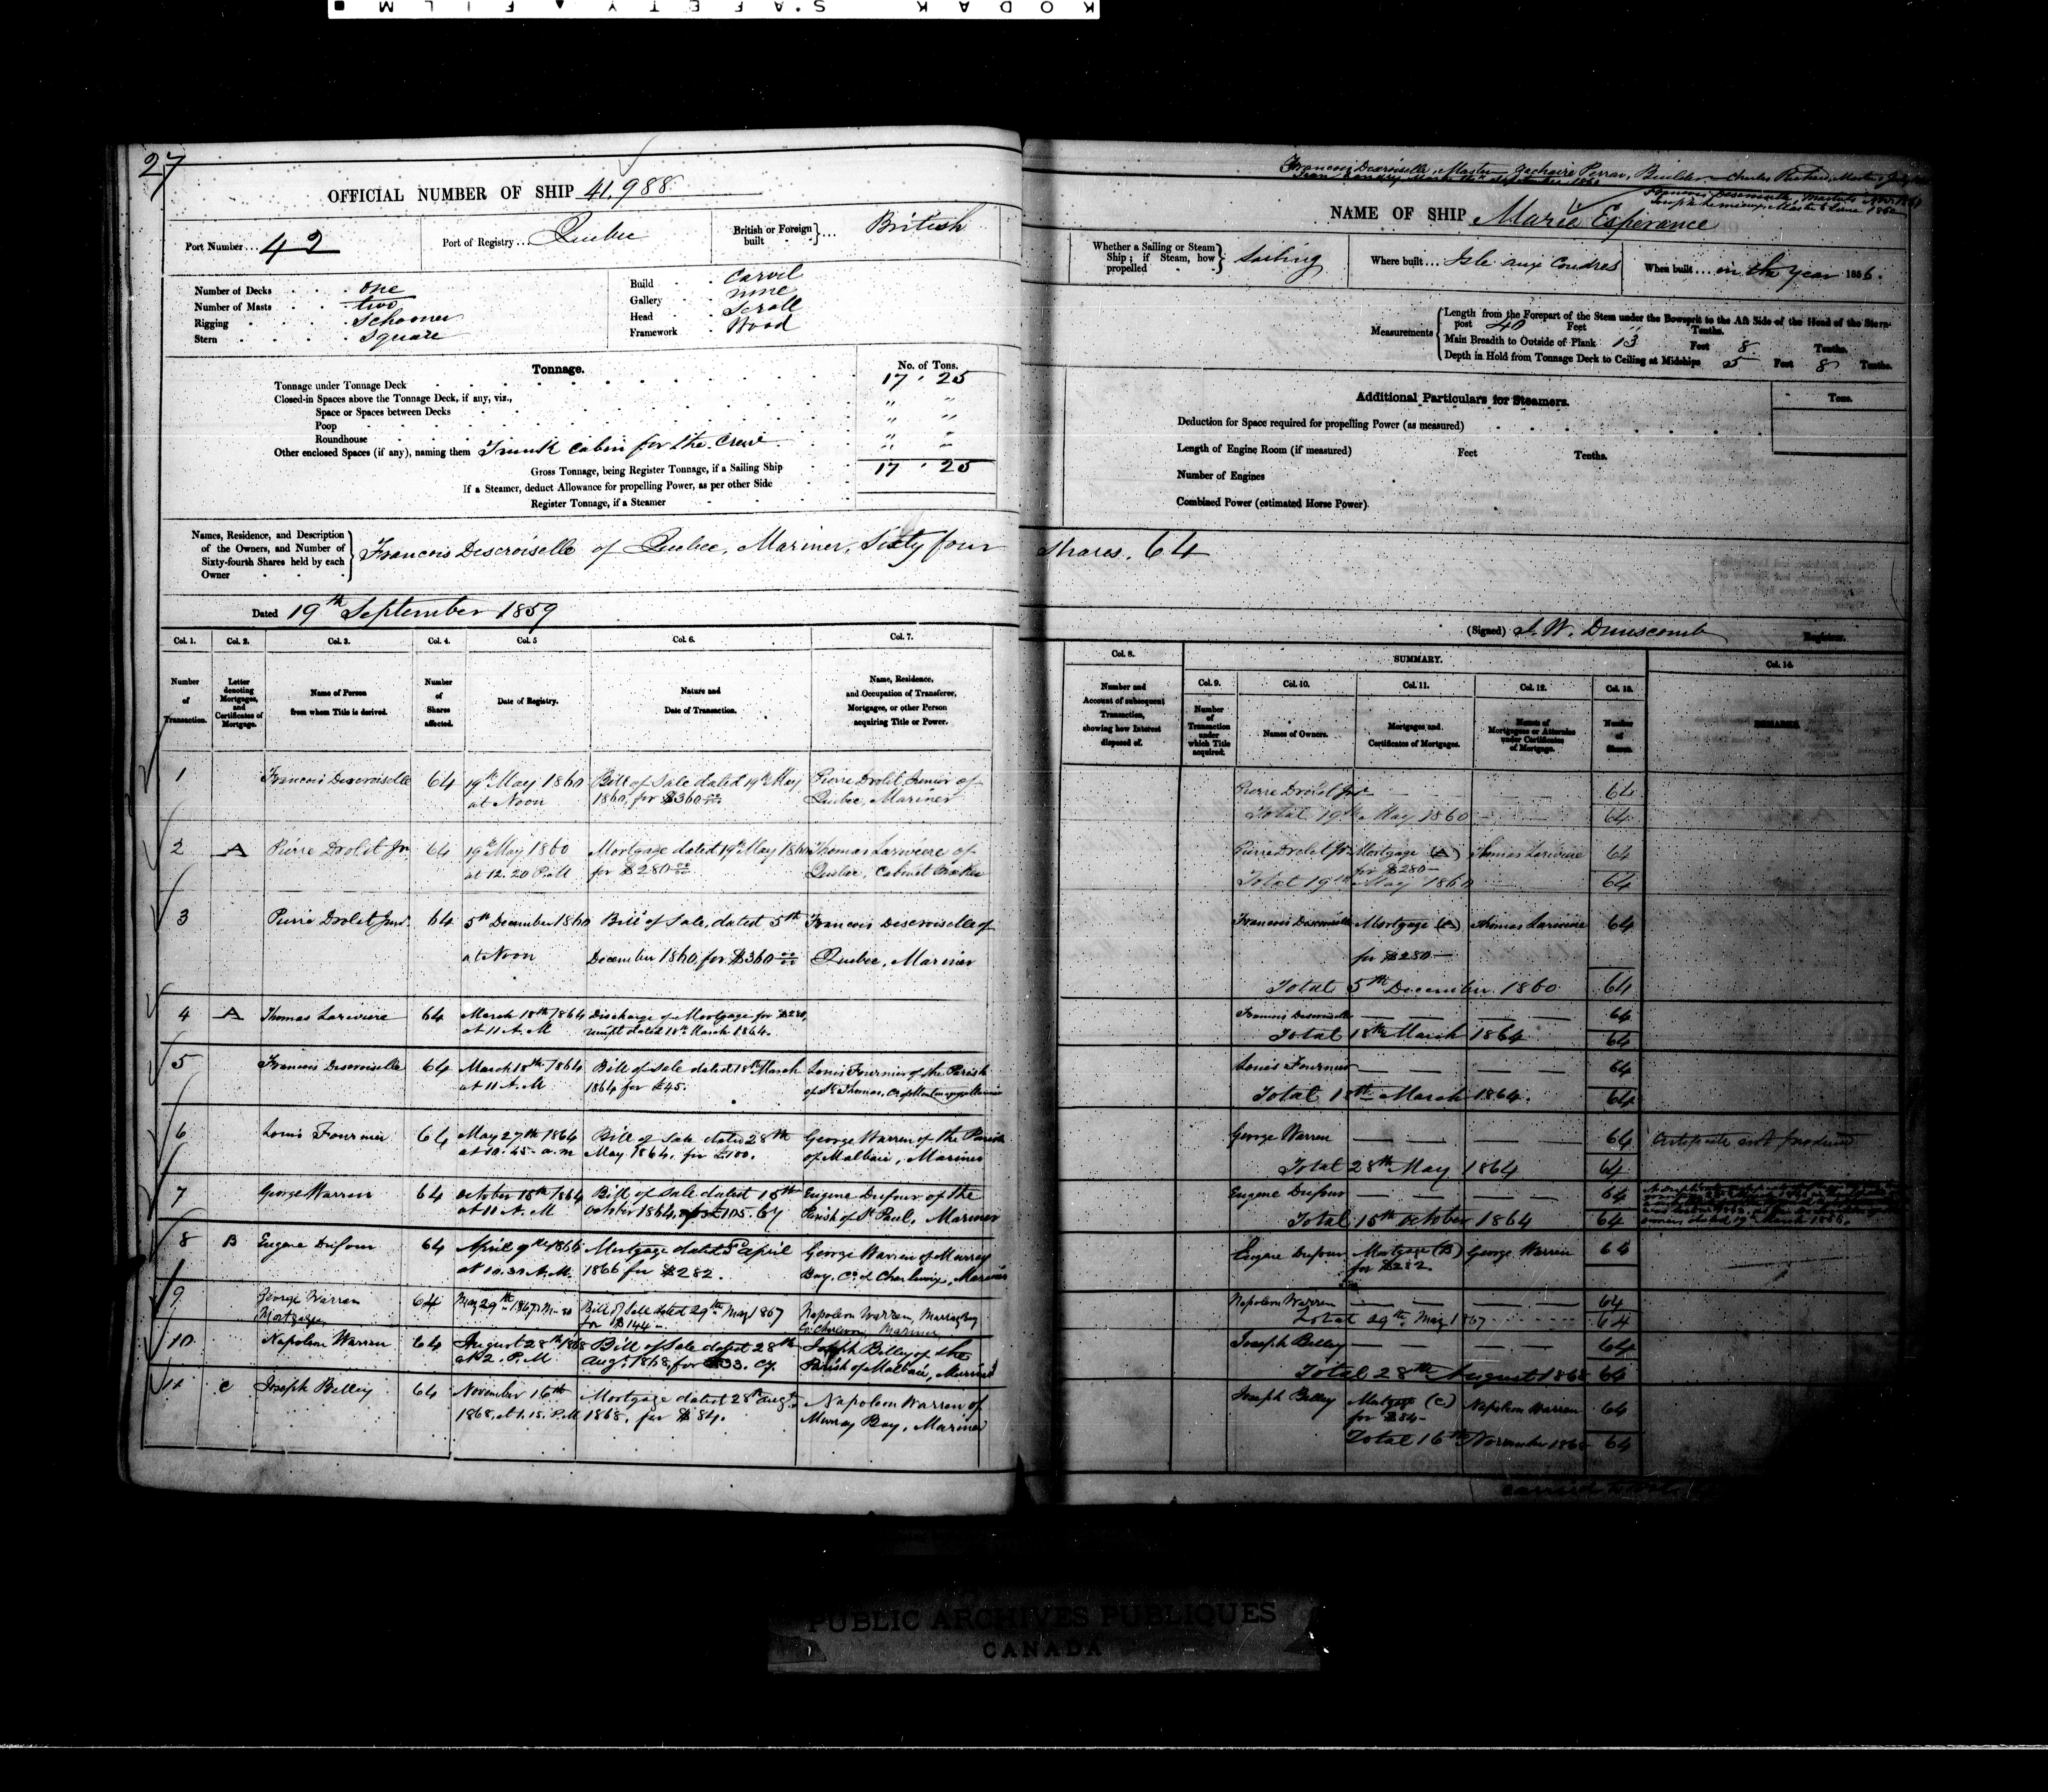 KODAK SAFETY FILM
27
OFFICIAL NUMBER OF SHIP 41,988
Port Number... 42
Port of Registry... Quebec
British or Foreign built } ... British
Number of Decks . . . one
Number of Masts . . . two
Rigging . . . Schooner
Stern . . . Square
Build . . Carvel
Gallery . . none
Head . . Scroll
Framework . Wood
Tonnage.
No. of Tons.
Tonnage under Tonnage Deck 17 . 25
Closed-in Spaces above the Tonnage Deck, if any, viz.,
Space or Spaces between Decks " "
Poop " "
Roundhouse " "
Other enclosed Spaces (if any), naming them Trunk Cabin for the Crew " "
Gross Tonnage, being Register Tonnage, if a Sailing Ship 17 . 25
If a Steamer, deduct Allowance for propelling Power, as per other Side
Register Tonnage, if a Steamer
Names, Residence, and Description of the Owners, and Number of Sixty-fourth Shares held by each Owner } Francois Descroiselle of Quebec, Mariner, Sixty four
Dated 19th September 1859
Col. 1. Col. 2. Col. 3. Col. 4. Col. 5 Col. 6. Col. 7.
Number of Transaction.
Letter denoting Mortgages, and Certificates of Mortgage.
Name of Person from whom Title is derived.
Number of Shares affected.
Date of Registry.
Nature and Date of Transaction.
Name, Residence, and Occupation of Transferee, Mortgagee, or other Person acquiring Title or Power.
1 Francois Descroiselle 64 19th May 1860 Bill of Sale dated 19th May Pierre Drolet Junior of
at Noon 1860, for $360 Quebec, Mariner
2 A Pierre Drolet Jnr. 64 19th May 1860 Mortgage dated 19th May 1860 Thomas Lariviere of
at 12.20 P.M for $280 Quebec, Cabinet Maker
3 Pierre Drolet Junr. 64 5th December 1860 Bill of Sale, dated 5th Francois Descroiselle of
at Noon December 1860, for $360 Quebec, Mariner
4 A Thomas Lariviere 64 March 18th 1864 Discharge of Mortgage for $280,
at 11 A.M dated 18th March 1864.
5 Francois Descroiselle 64 March 18th 1864 Bill of Sale dated 18th March Louis Fournier of the Parish
at 11 A.M 1864 for £45. of St Thomas, Co of Montmagny Mariner
6 Louis Fournier 64 May 27th 1864 Bill of Sale dated 28th George Warren of the Parish
at 10.45 a.m May 1864, for £100. of Malbaie, Mariner
7 George Warren 64 October 15th 1864 Bill of Sale dated 15th Eugene Dufour of the
at 11 A.M October 1864, for £105. Cy Parish of St Paul, Mariner
8 B Eugene Dufour 64 April 9th 1866 Mortgage dated April George Warren of Murray
at 10.30 A.M. 1866 for $282. Bay, Co. of Charlevoix, Mariner
9 George Warren 64 May 29th 1867 Bill of Sale dated 29th May 1867 Napoleon Warren, Murray Bay
Mortgagee for $144 Co Charlevoix Mariner
10 Napoleon Warren 64 August 28th 1868 Bill of Sale dated 28th Joseph Belley of the
at 2. P.M Augt. 1868, for 33. Cy. Parish of Malbaie, Mariner
11 C Joseph Belley 64 November 16th Mortgage dated 28th Augt. Napoleon Warren of
1868, at 1.15. P.M 1868, for $84. Murray Bay, Mariner
Francois Descroiselle, Master Zachaire Perron, Builder Charles Master
September 1860
Francois Descroiselle, Master Nov. 1860
Joseph Master June 1862
NAME OF SHIP Marie Esperance
Whether a Sailing or Steam Ship; if Steam, how propelled } Sailing
Where built... Isle aux Coudres
When built... in the year 1856.
Measurements
Length from the Forepart of the Stem under the Bowsprit to the Aft Side of the Head of the Stern-
post 40 Feet " Tenths.
Main Breadth to Outside of Plank 13 Feet 8 Tenths.
Depth in Hold from Tonnage Deck to Ceiling at Midships 5 Feet 8 Tenths.
Additional Particulars for Steamers.
Tons.
Deduction for Space required for propelling Power (as measured)
Length of Engine Room (if measured) Feet Tenths.
Number of Engines
Combined Power (estimated Horse Power)
Shares. 64
(Signed) J. W. Dunscomb Registrar.
Col. 8.
SUMMARY.
Col. 9. Col. 10. Col. 11. Col. 12. Col. 13. Col. 14.
Number and Account of subsequent Transaction, showing how Interest disposed of.
Number of Transaction under which Title acquired.
Names of Owners.
Mortgages and Certificates of Mortgages.
Names of Mortgagees or Attornies under Certificates of Mortgage.
Number of Shares.
REMARKS.
Pierre Drolet Jnr — — — 64
Total 19th May 1860 — — 64
Pierre Drolet Jr Mortgage (A) Thomas Lariviere 64
for $280
Total 19th May 1860 64
Francois Descroiselle Mortgage (A) Thomas Lariviere 64
for $280
Total 5th December 1860 64
Francois Descroiselle — — — 64
Total 18th March 1864 64
Louis Fournier — — — 64
Total 18th March 1864. 64
George Warren — — — 64 Certificate not produced
Total 28th May 1864 64
Eugene Dufour — — — 64
Total 15th October 1864 64
owners dated 19th March 1866.
Eugene Dufour Mortgage (B) George Warren 64
for $282.
Napoleon Warren — — — 64
Total 29th May 1867 64
Joseph Belley — — — 64
Total 28th August 1868 64
Joseph Belley Mortgage (C) Napoleon Warren 64
for $84
Total 16th November 1868 64
carried
PUBLIC ARCHIVES PUBLIQUES
CANADA